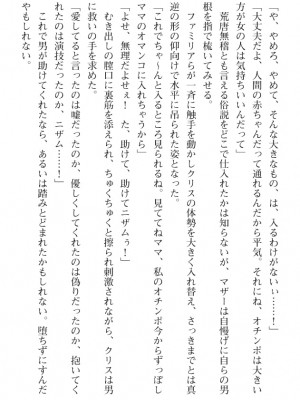 「や、やめろ、やめて、そんな大きなもの、は、入るわけがない……！」
「大丈夫だよ、人間の赤ちゃんだって通れるんだから平気。それにね、オチンポは大きい
方が女の人は気持ちいいんだって」
　荒唐無稽とも言える俗説をどこで仕入れたかは知らないが、マザーは自慢げに自らの男
根を指で梳いてみせる。
　ファミリアらが一斉に触手を動かしクリスの体勢を大きく入れ替え、さっきまでとは真
逆の形の仰向けで水平に吊られた姿となった。
「これでちゃーんと入るところ見られるね。見ててねママ、私のオチンポ今からずっぽし
ママのオマンコに入れちゃうから」
「よせ、無理だよせぇ！　た、助けて、助けてニザムぅ！」
　むき出しの膣口に裏筋を添えられ、ちゅくちゅくと擦られ刺激されながら、クリスは男
に救いの手を求めた。
　愛してると言ったのは嘘だったのか、優しくしてくれたのは偽りだったのか、抱いてく
れたのは演技だったのか、ニザム……！
　これで男が助けてくれたなら、あるいは踏みとどまれたかもしれない。堕ちずにすんだ
やもしれない。